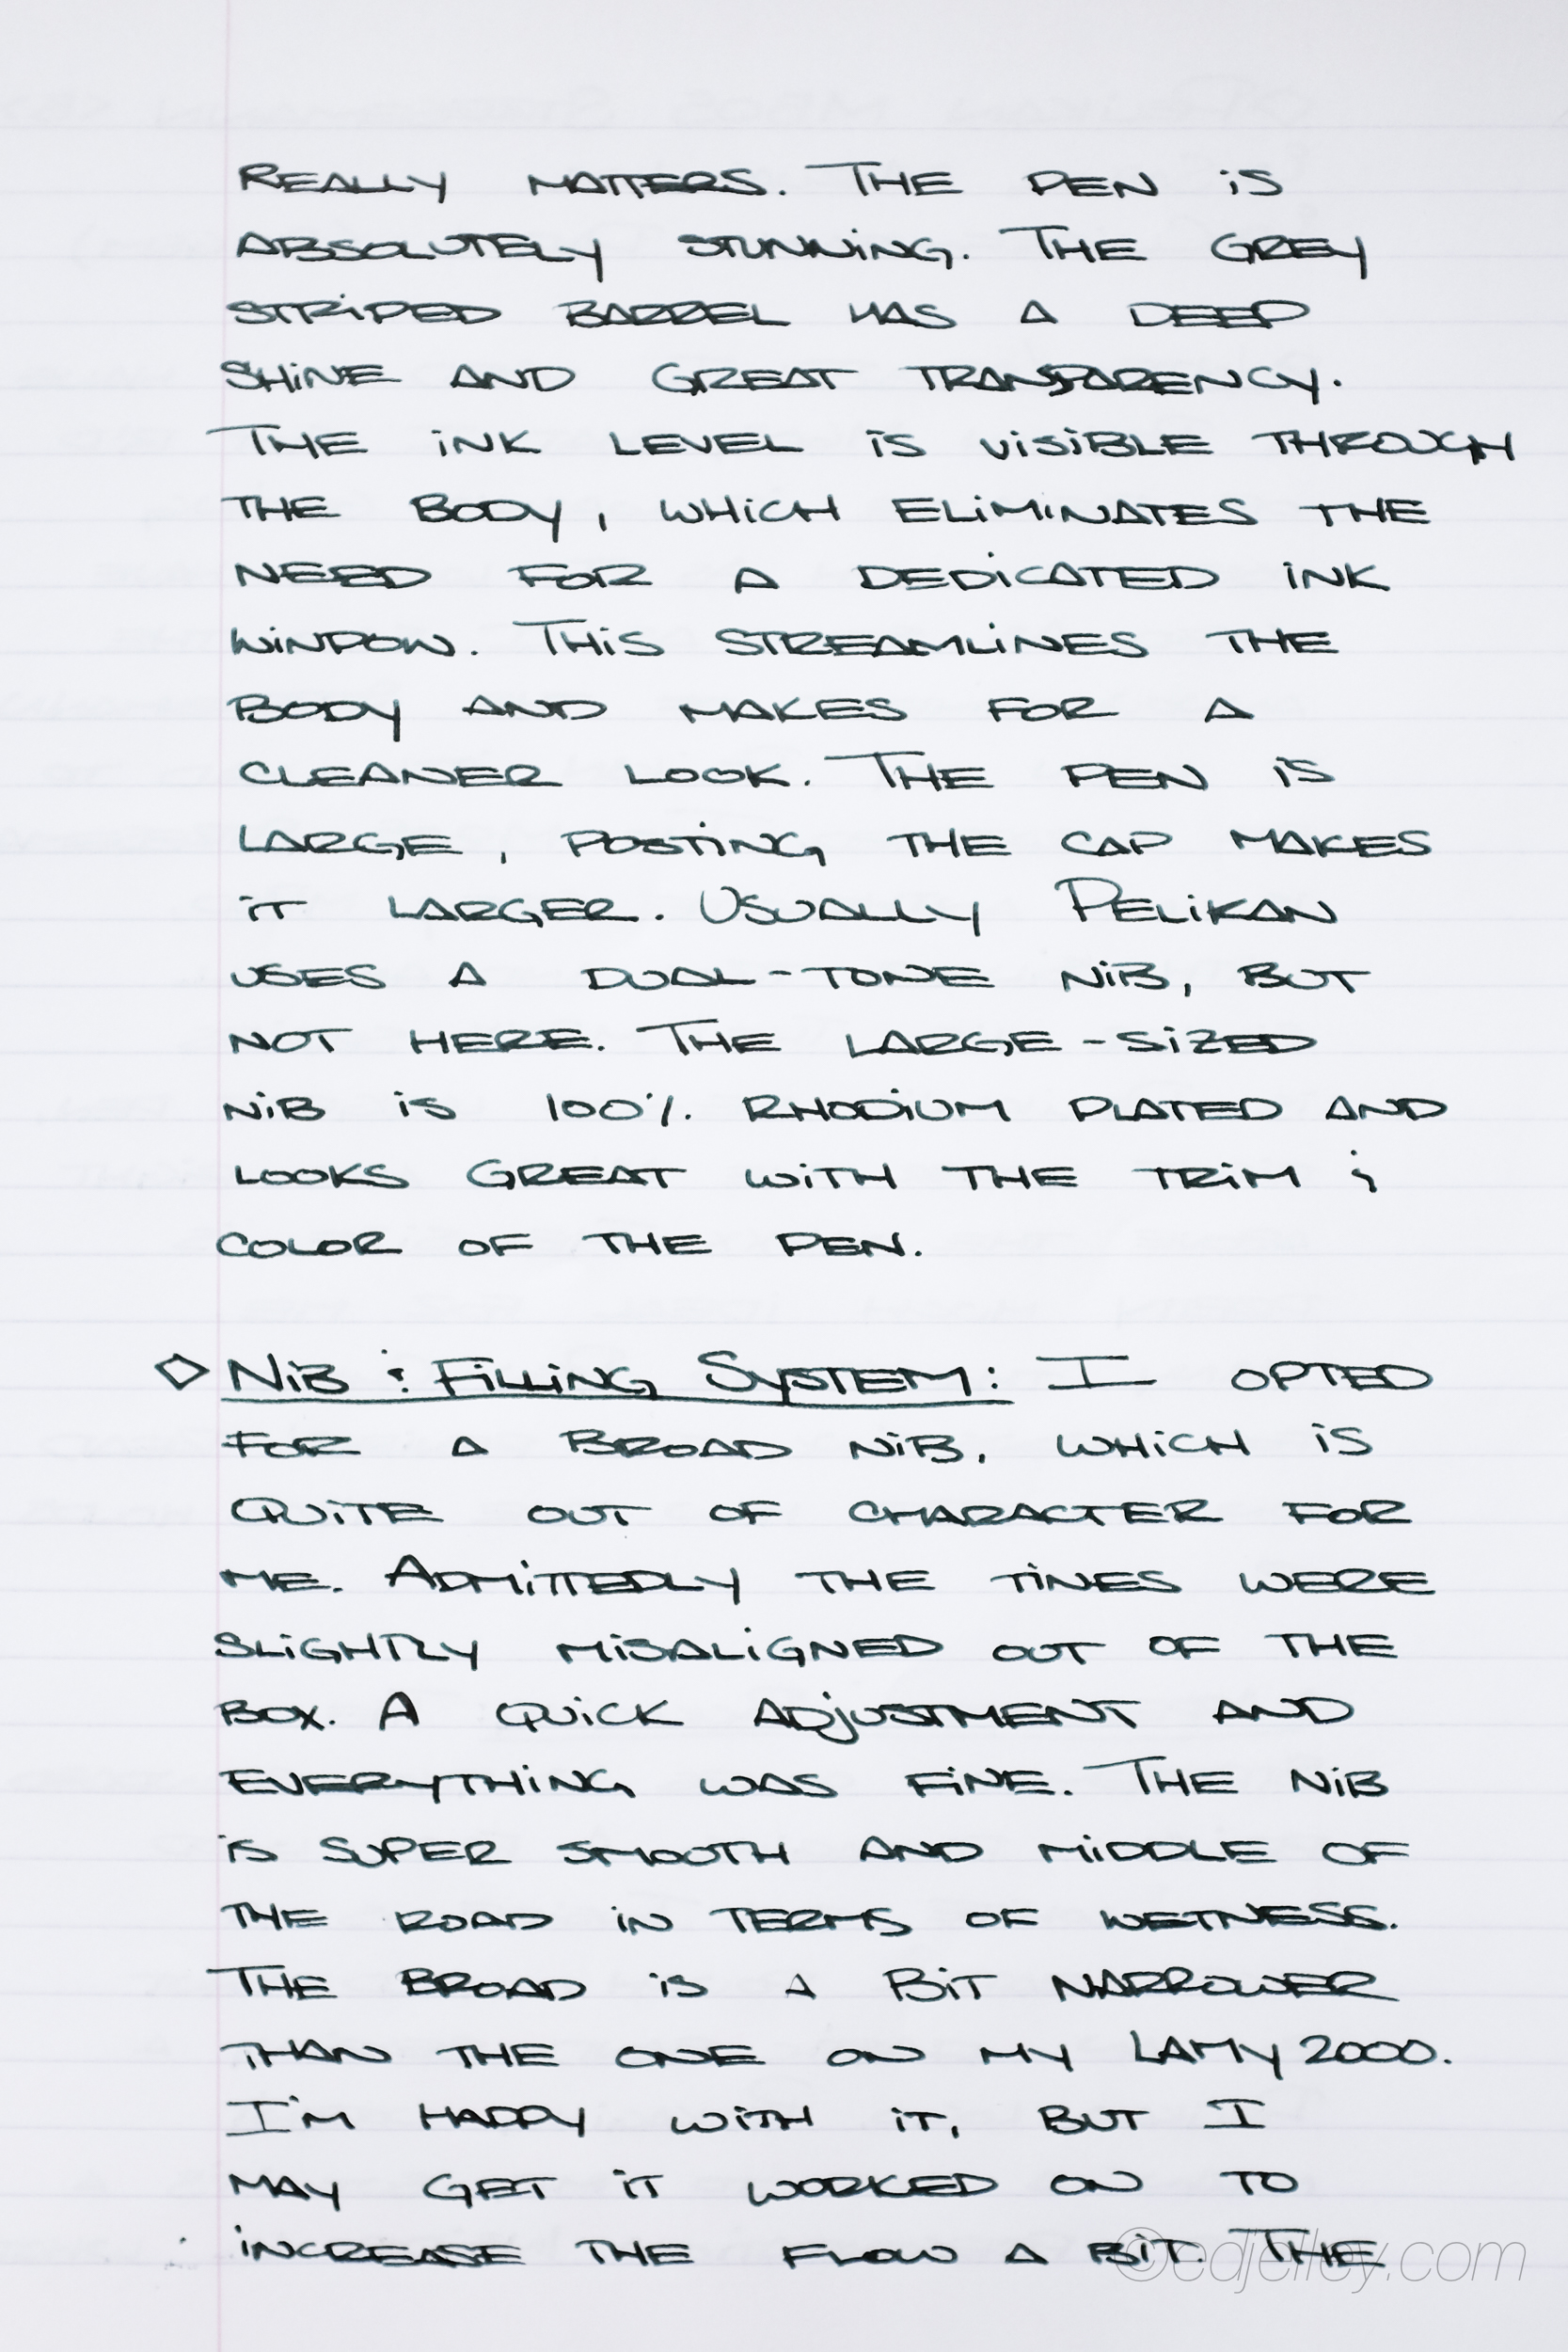 REALLY MATTERS. THE PEN iS
ABSOLUTELY STUNNiNG. THE GREY
STRiPED BARREL HAS A DEEP
SHiNE AND GREAT TRANSPARENCY.
THE iNK LEVEL iS ViSiBLE THROUGH
THE BODY, WHiCH ELiMiNATES THE
NEED FOR A DEDiCATED iNK
WiNDOW. THiS STREAMLiNES THE
BODY AND MAKES FOR A
CLEANER LOOK. THE PEN iS
LARGE, POSTiNG THE CAP MAKES
iT LARGER. USUALLY PELiKAN
USES A DUAL-TONE NiB, BUT
NOT HERE. THE LARGE-SiZED
NiB iS 100% RHODiUM PLATED AND
LOOKS GREAT WiTH THE TRiM &
COLOR OF THE PEN.
◇ NiB & FiLLiNG SYSTEM: I OPTED
FOR A BROAD NiB, WHiCH iS
QUiTE OUT OF CHARACTER FOR
ME. ADMiTTEDLY THE TiNES WERE
SLiGHTLY MiSALiGNED OUT OF THE
BOX. A QUiCK ADjUSTMENT AND
EVERYTHiNG WAS FiNE. THE NiB
iS SUPER SMOOTH AND MiDDLE OF
THE ROAD iN TERMS OF WETNESS.
THE BROAD iS A BiT NARROWER
THAN THE ONE ON MY LAMY 2000.
I'M HAPPY WiTH iT, BUT I
MAY GET iT WORKED ON TO
iNCREASE THE FLOW A BiT. THE
©edjelley.com